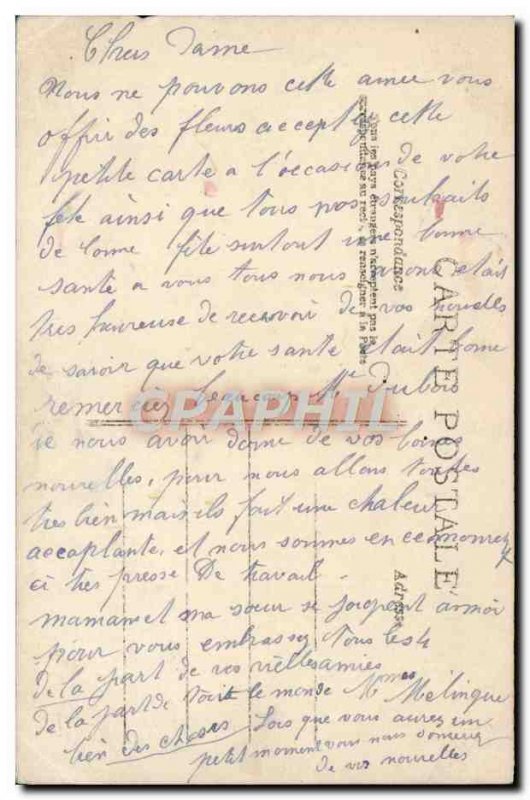 Chers Dame
Nous ne pouvons cette annee vous
offrir des fleurs acceptez cette
petite carte a l'occasion de votre
fête ainsi que tous nos souhaits
de bonne fête surtout une bonne
santé a vous tous nous avons etait
tres heureuse de recevoir de vos nouvelles
de savoir que votre sante etait bonne
remerciez beaucoup Mme Dubois
de nous avoir donne de vos bonnes
nouvelles, pour nous allons toutes
tres bien mais ils fait une chaleur
accaplante, et nous sommes en ce moment
ci tres presse De travail.
maman et ma sœur se joignent a moi
pour vous embrasser Tous les 4
de la part de vos vielles amies
Mmes Mélingue
de la part de toute le monde
bien des choses Lors que vous aurez un
petit moment vous nous donnerez
de vos nouvelles
CARTE POSTALE
Correspondance
Tous les pays étrangers n'acceptent pas la
correspondance au recto, se renseigner à la Poste
Adresse
CPAPHIL